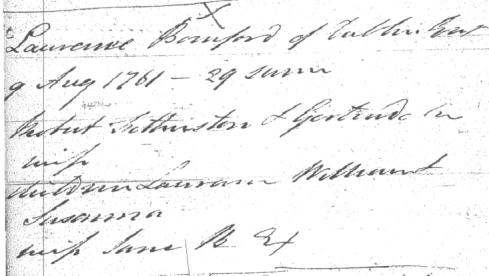 X
Laurence Bomford of Dublin Gent
9 Aug 1761 - 29 same
Robut Fetherston & Gertrude his
wife
children Laurence William &
Susanna
wife Jane R Ex